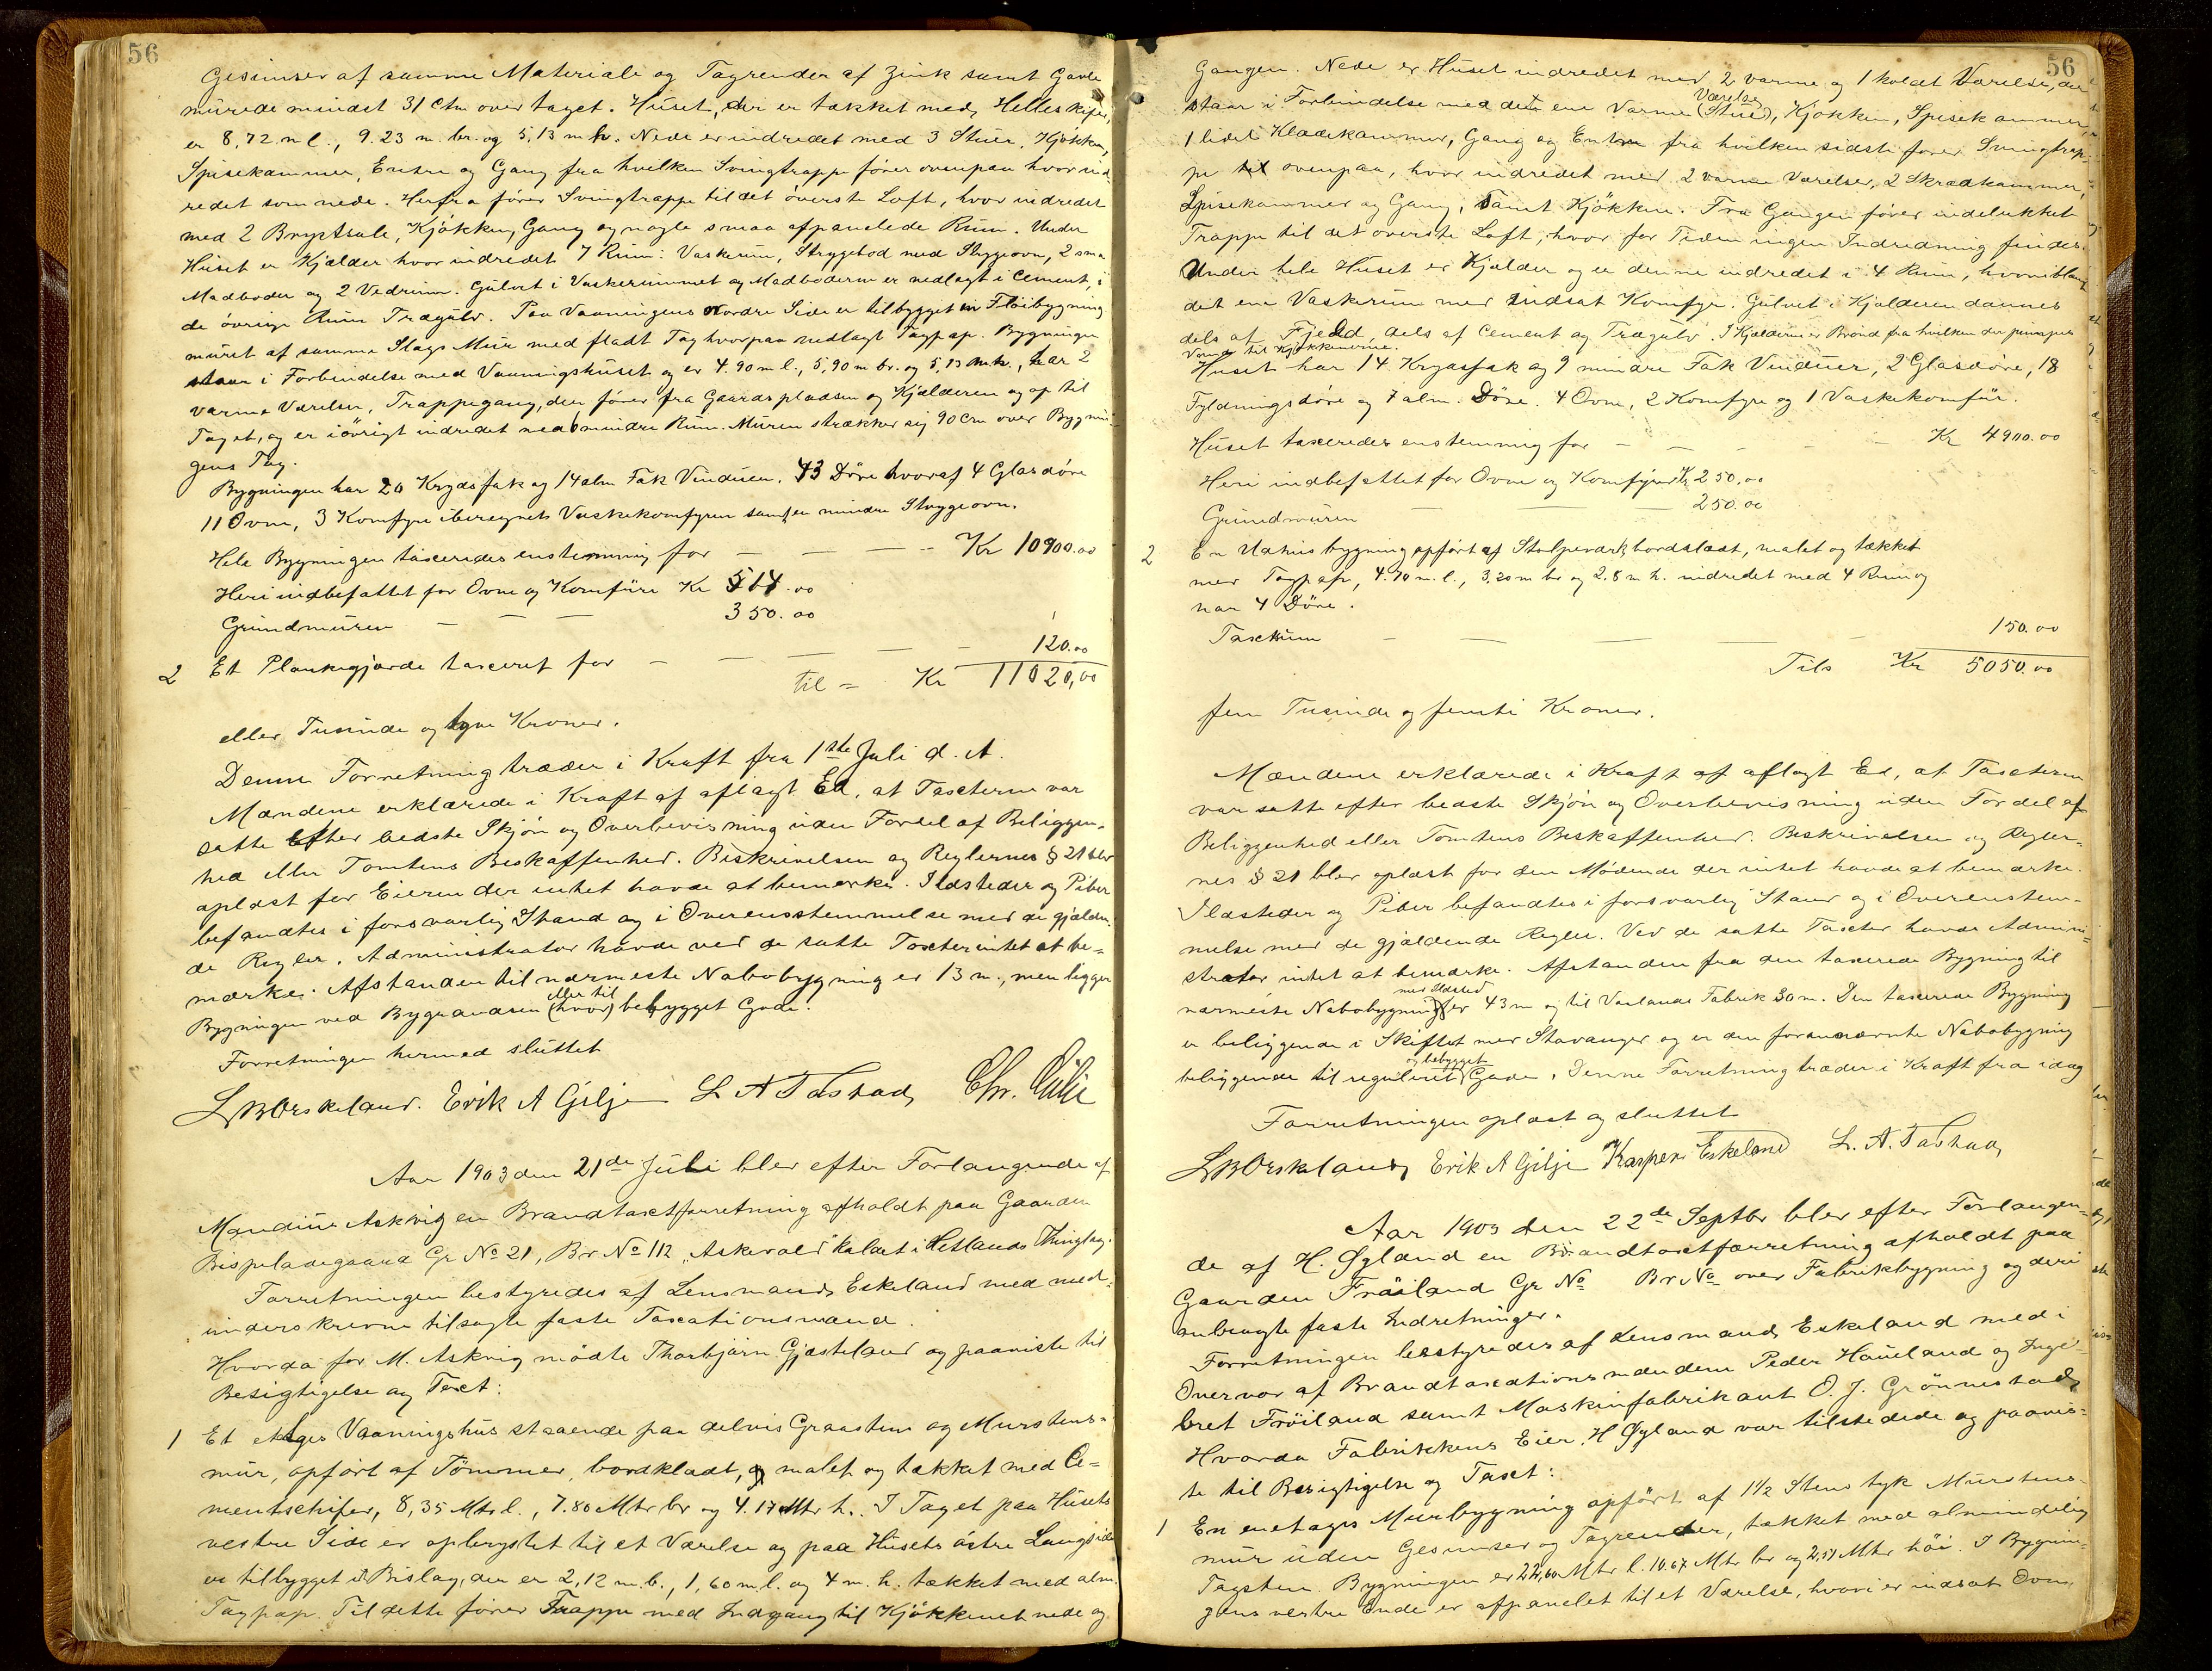 56
Gesimser af samme Materiale og Tagrender af Zink samt Gavle
murede mindst 31 Ctm over taget. Huset, der er tækket med Helleskifer,
er 8,72 m l., 9.23 m. br. og 5,13 m h. Nede er indredet med 3 Stuer, Kjøkken,
Spisekammer, Entre og Gang fra hvilken Svingtrappe fører ovenpaa hvor ind-
redet som nede. Herfra fører Svingtrappe til det øverste Loft, hvor indredet
med 2 Brystsale, Kjøkken, Gang og nogle smaa afpanelede Rum. Under
Huset er Kjælder hvor indredet 7 Rum: Vaskerum, Strygebod med Strygeovn, 2 sma
Madboder og 2 Vedrum. Gulvet i Vaskerummet og Madboderne er nedlagt i Cement, i
de øvrige Rum Trægulv. Paa Vaaningens Nordre Side er tilbygget en Fløibygning
muret af samme Slags Mur med fladt Tag hvorpaa nedlagt Tagpap. Bygningen
staar i Forbindelse med Vaaningshuset og er 4.90 m l., 5,90 m br. og 5,13 m h., har 2
varme Værelser, Trappegang, der fører fra Gaardspladsen og Kjælderen og op til
Taget, og er iøvrigt indredet med 6 mindre Rum. Muren strækker sig 90 Cm over Bygnin-
gens Tag.
Bygningen har 20 Krydsfak og 14 alm Fak Vinduer. 43 Døre hvoraf 4 Glasdøre
11 Ovne, 3 Komfyre iberegnets Vaskekomfyren samt en mindre Strygeovn.
Hele Bygningen taxeredes enstemmig for — — — Kr 10900.00
Heri indbefattet for Ovne og Komfüre Kr 514.00
Grundmuren — — — 350.00
2 Et Plankegjærde taxeret for — — — — 120.00
til = Kr 11020,00
eller Tusinde og tyve Kroner.
Denne Forretning træder i Kraft fra 1ste Juli d. A.
Mændene erklærede i Kraft af aflagt Ed, at Taxterne var
satte efter bedste Skjøn og Overbevisning uden Fordel af Beliggen-
hed eller Tomtens Beskaffenhed. Beskrivelsen og Reglernes § 21 blev
oplæst for Eieren der intet havde at bemærke. Ildsteder og Piber
befandtes i forsvarlig Stand og i Overensstemmelse med de gjælden-
de Regler. Administrator havde ved de satte Taxter intet at be-
mærke. Afstanden til nærmeste Nabobygning er 13 m., men ligger
eller til
Bygningen ved Bygrændsen (hvor) bebygget Gade.
Forretningen hermed sluttet
L B Orskeland. Erik A Gilje L A Tastad,
Aar 1903 den 21de Juli blev efter Forlangende af
Mandius Askvig en Brandtaxtforretning afholdt paa Gaarden
Bispeladegaard Gr No 21, Br No 112 „Askevold" kaldet i Hetlands Thinglag.
Forretningen bestyredes af Lensmand Eskeland med med-
underskrevne tilsagte faste Taxationsmænd.
Hvorda for M. Askvig mødte Thorbjørn Gjesteland og paaviste til
Besigtigelse og Taxt:
1 Et etages Vaaningshus staaende paa delvis Graastens og Murstens-
mur, opført af Tømmer, bordklædt, og malet og tækket med Ce-
mentschifer, 8,35 Mtr l., 7.80 Mtr br og 4.17 Mtr h. I Taget paa Husets
vestre Side er opbrystet til et Værelse og paa Husets østre Langside
er tilbygget et Bislag, der er 2,12 m. b., 1,60 m. l. og 4 m. h. tækket med alm.
Tagpap. Til dette fører Trappe med Indgang til Kjøkkenet nede og
56
Gangen. Nede er Huset indredet med 2 varme og 1 koldt Værelse, der
Værelse
staar i Forbindelse med det ene Varme (Stue), Kjøkken, Spisekammer,
1 lidet Klædekammer, Gang og Entre fra hvilken sidste fører Svingtrap-
pe til ovenpaa, hvor indredet med 2 varme Værelser, 2 Skraakammer,
Spisekammer og Gang, samt Kjøkken. Fra Gangen fører indelukket
Trappe til det øverste Loft, hvor for Tiden ingen Indredning findes.
Under hele Huset er Kjælder og er denne indredet i 4 Rum, hvoriblandt
det ene Vaskerum med Indsat Komfyr. Gulvet i Kjælderen dannes
dels af Fjeld, dels af Cement og Trægulv. I Kjælderen er Brønd fra hvilken der pumpes
Vand til Kjøkkenerne.
Huset har 14 Krydsfak og 9 mindre Fak Vinduer, 2 Glasdøre, 18
Fyldningsdøre og 7 alm. Døre. 4 Ovne, 2 Komfyre og 1 Vaskekomfür.
Huset taxeredes enstemmig for — — — Kr 4900.00
Heri indbefattet for Ovne og Komfyrer Kr 250.00
Grundmuren — — 250.00
2 En Udhusbygning opført af Stolpeværk, bordklædt, malet og tækket
med Tagpap, 4.70 m. l., 3.20 m br og 2.8 m h. indredet med 4 Rum og
har 4 Døre.
Taxtsum — — — — 150.00
Tils Kr 5050.00
fem Tusinde og femti Kroner.
Mændene erklærede i Kraft af aflagt Ed, at Taxterne
var satte efter bedste Skjøn og Overbevisning uden Fordel af
Beliggenhed eller Tomtens Beskaffenhed. Beskrivelsen og Regler-
nes § 21 blev oplæst for den Mødende der intet havde at bemærke.
Ildsteder og Piber befandtes i forsvarlig Stand og i Overenstem-
melse med de gjældende Regler. Ved de satte Taxter havde Admini-
strator intet at bemærke. Afstanden fra den taxerede Bygning til
med Ildsted
nærmeste Nabobygning er 43 m og til Varlands Fabrik 30 m. Den taxerede Bygning
er beliggende i Skiftet med Stavanger og er den forannævnte Nabobygning
og bebygget
beliggende til reguleret Gade. Denne Forretning træder i Kraft fra idag
Forretningen oplæst og sluttet
L B Orskeland, Erik A Gilje Kasper Eskeland L. A. Tastad,
Aar 1903 den 22de Septbr blev efter Forlangen-
de af H. Øgland en Brandtaxtforretning afholdt paa
Gaarden Frøiland Gr No Br No over Fabrikbygning og deri
anbragte faste Indretninger.
Forretningen bestyredes af Lensmand Eskeland med i
Overvær af Brandtaxationsmændene Peder Haueland og Inge-
bret Frøiland samt Maskinfabrikant O. J. Grønnestad,
Hvorda Fabrikkens Eier H Øgland var tilstedede og paavis-
te til Besigtigelse og Taxt:
1 En enetages Murbygning opført af 1 1/2 Stens tyk Murstens-
mur uden Gesimser og Tagrender, tækket med almindelig
Tagsten. Bygningen er 22,60 Mtr l. 10.67 Mtr br og 2,51 Mtr høi. I Bygnin-
gens vestre Ende er afpanelet til et Værelse, hvori er indsat Ovn,